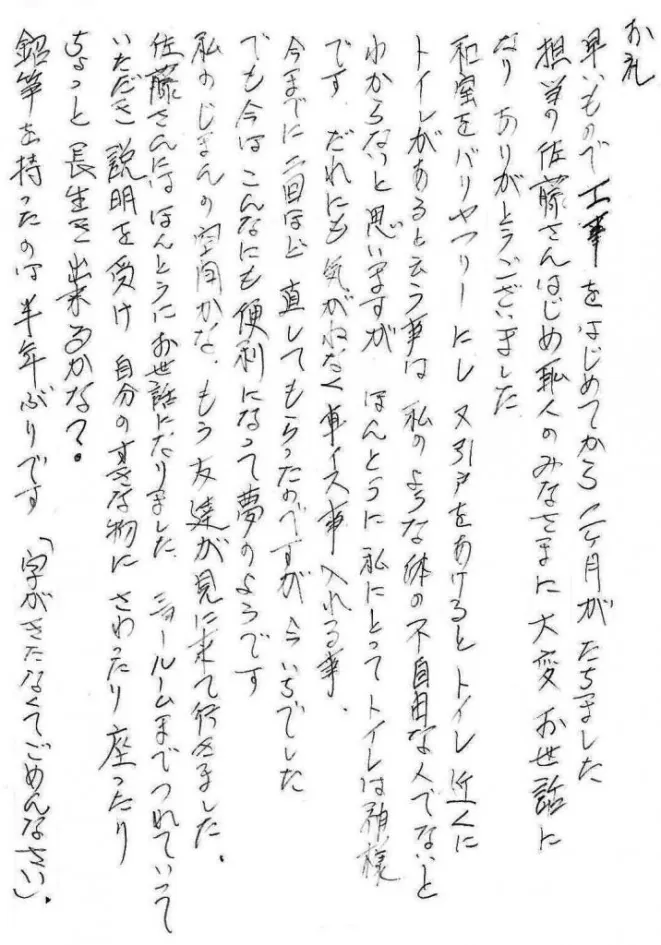 お礼
早いもので工事をはじめてから二ヶ月がたちました
担当の佐藤さんはじめ職人のみなさまに大変お世話に
なりありがとうございました
和室をバリヤフリーにし又引戸をあけるとトイレ近くに
トイレがあると云う事は私のような体の不自由な人でないと
わからないと思いますがほんとうに私にとってトイレは神様
です だれにも気がねなく車イス事入れる事、
今までに二回ほど直してもらったのですが今いちでした
でも今はこんなにも便利になって夢のようです
私のじまんの空間かな、もう友達が見に来て行きました。
佐藤さんにはほんとうにお世話になりました ショールームまでつれていって
いただき説明を受け自分のすきな物にさわったり座ったり
ちょっと長生き出来るかな?。
鉛筆を持ったのは半年ぶりです「字がきたなくてごめんなさい」.